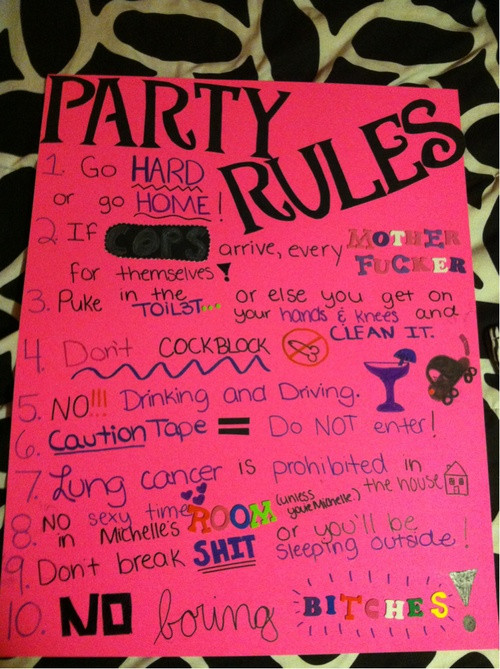 PARTY
RULES
1. Go HARD
or go HOME!
2. If COPS arrive, every MOTHER FUCKER
for themselves!
3. Puke in the TOILET... or else you get on
your hands & knees and
CLEAN IT.
4. Don't COCKBLOCK
5. NO!!! Drinking and Driving.
6. Caution Tape = Do NOT enter!
7. Lung cancer is prohibited in
the house
8. NO sexy time
in Michelle's ROOM (unless
you're Michelle)
or you'll be
sleeping outside!
9. Don't break SHIT
10. NO boring BITCHES!